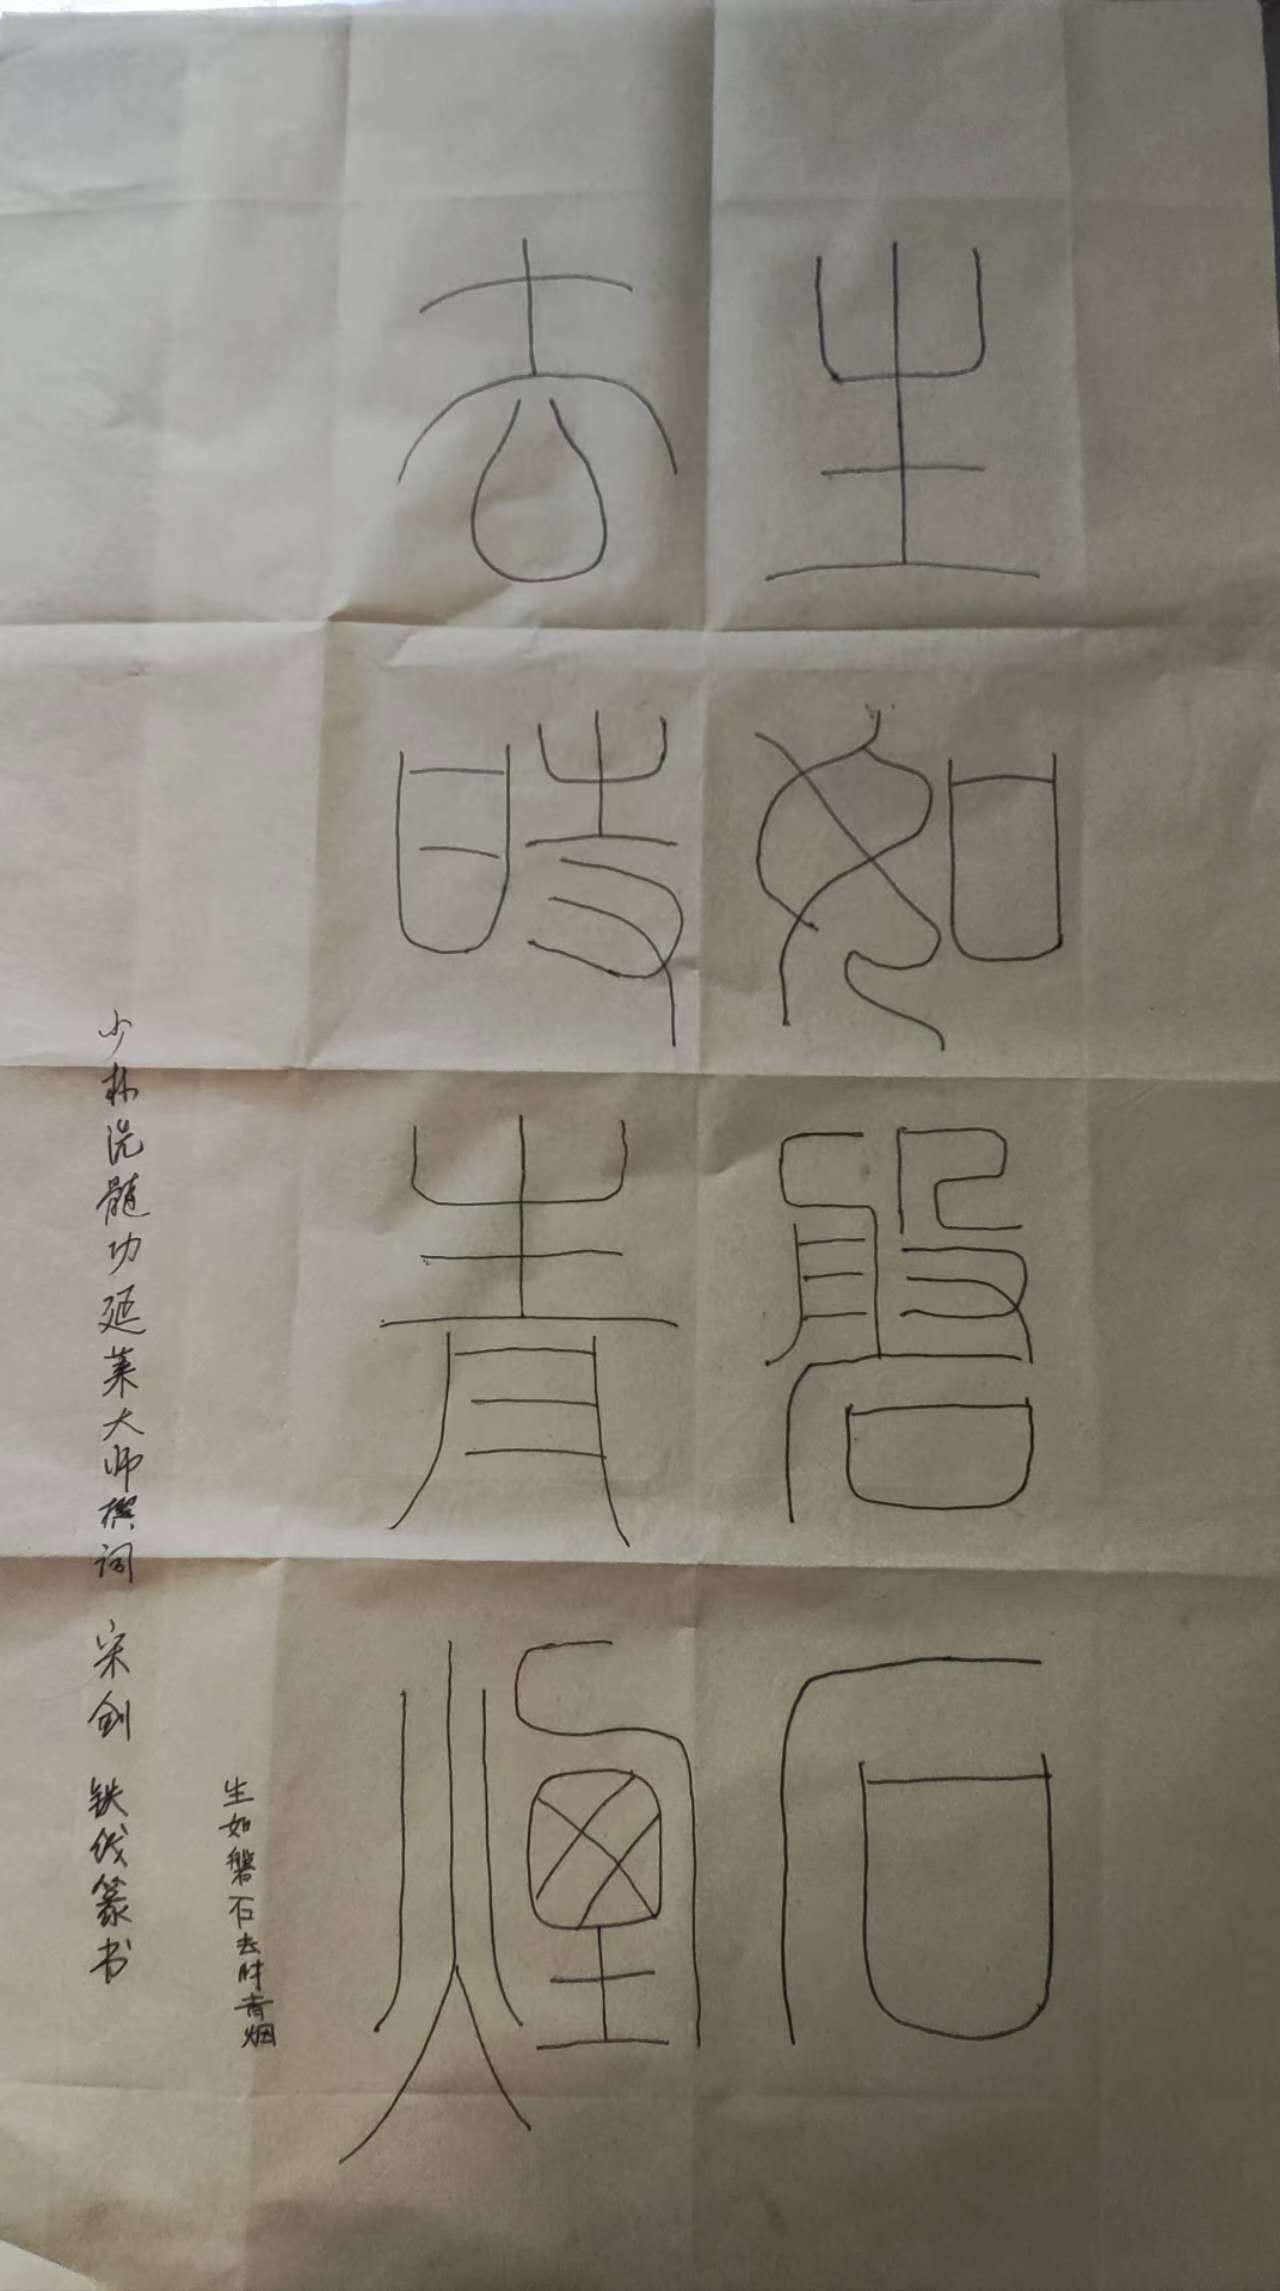 生如磐石
去時青煙
生如磐石去时青烟
少林洗髓功延莱大师撰词 宋剑 铁线篆书